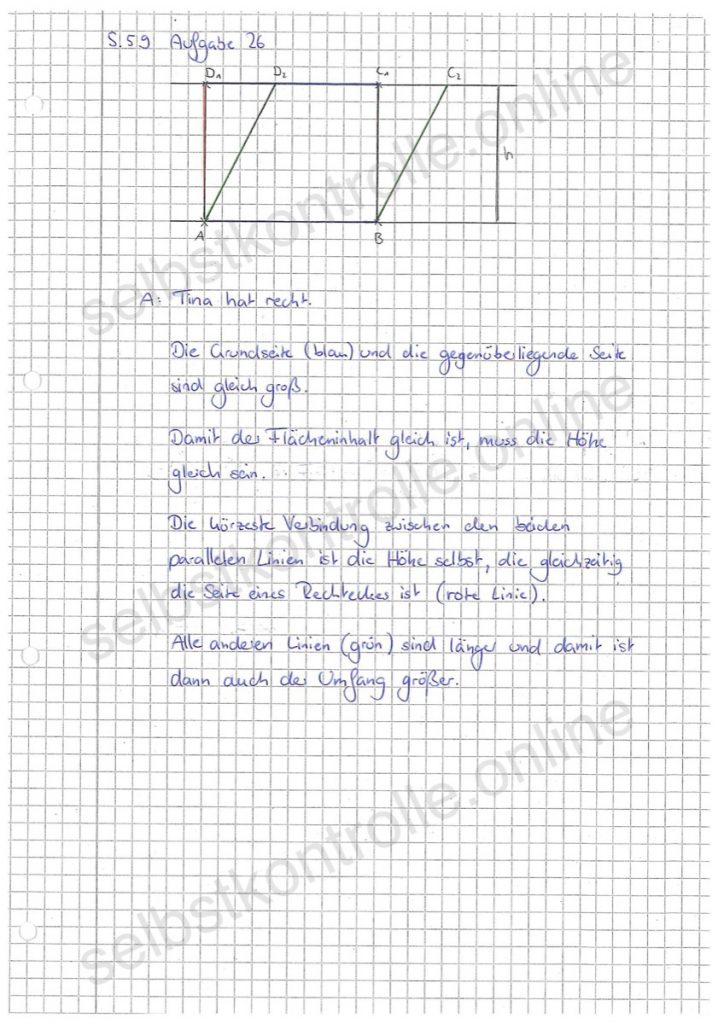 S.59 Aufgabe 26
D1 D2 C1 C2
h
A B
A: Tina hat recht.
Die Grundseite (blau) und die gegenüberliegende Seite
sind gleich groß.
Damit der Flächeninhalt gleich ist, muss die Höhe
gleich sein.
Die kürzeste Verbindung zwischen den beiden
parallelen Linien ist die Höhe selbst, die gleichzeitig
die Seite eines Rechteckes ist (rote Linie).
Alle anderen Linien (grün) sind länger und damit ist
dann auch der Umfang größer.
selbstkontrolle.online
selbstkontrolle.online
selbstkontrolle.online